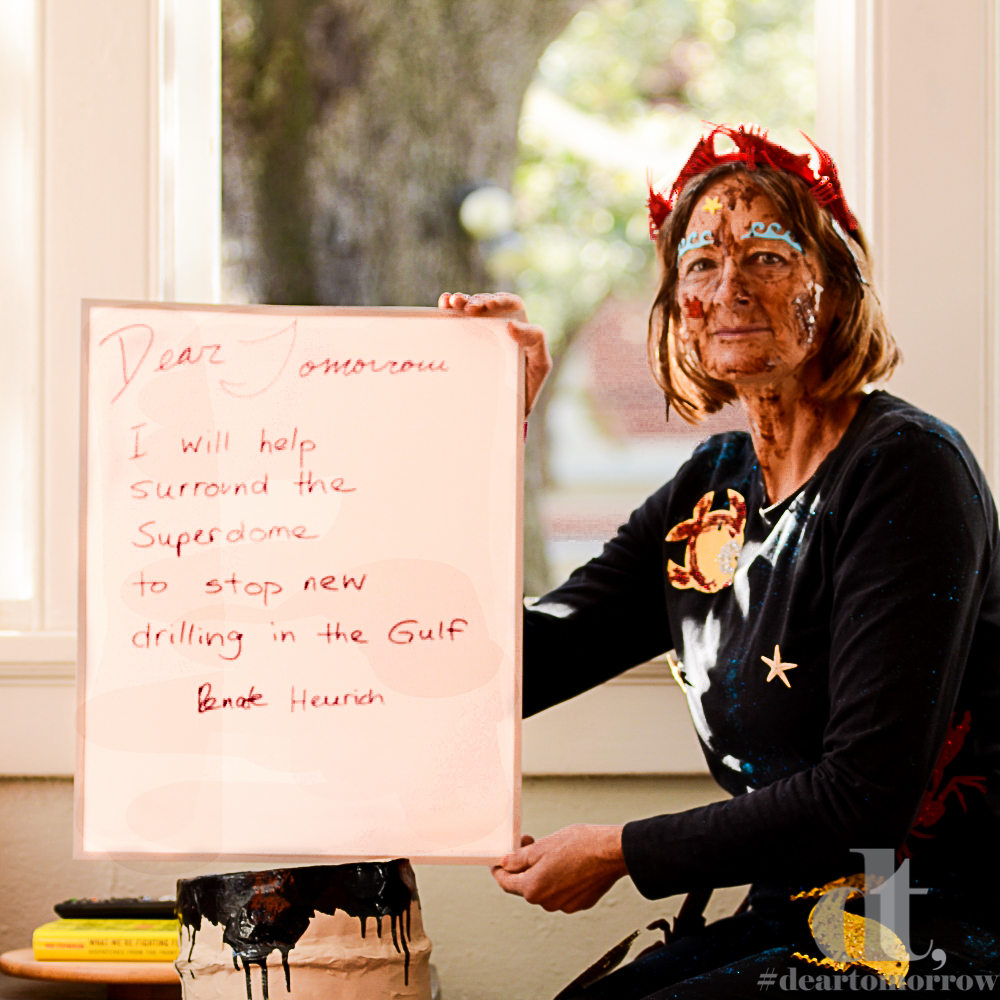 Dear Tomorrow
I will help
surround the
Superdome
to stop new
drilling in the Gulf
Renate Heurich
WHAT WE'RE FIGHTING F
dt,
#deartomorrow